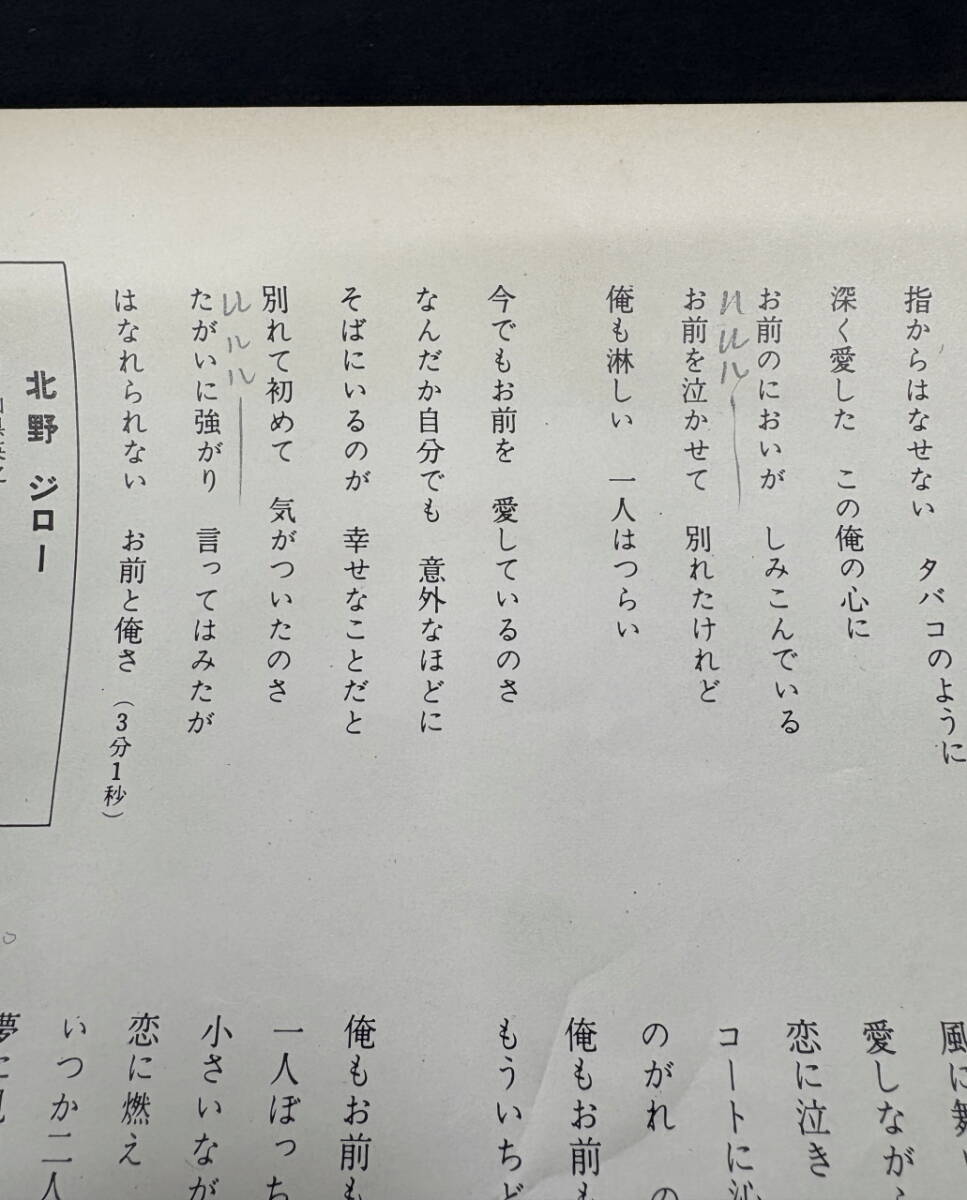 指からはなせない タバコのように
深く愛した この俺の心に
お前のにおいが しみこんでいる
ルルル
お前を泣かせて 別れたけれど
俺も淋しい 一人はつらい
今でもお前を 愛しているのさ
なんだか自分でも 意外なほどに
そばにいるのが 幸せなことだと
別れて初めて 気がついたのさ
ルルル
たがいに強がり 言ってはみたが
はなれられない お前と俺さ (3分1秒)
北野 ジロー
風に舞
愛しなが
恋に泣き
コートに沁
のがれ の
俺もお前も
もういちど
俺もお前も
一人ぼっち
小さいなが
恋に燃え
いつか二人
夢に